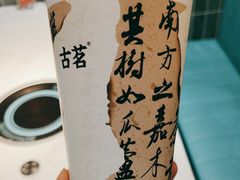 古茗
南方之嘉木
其樹如瓜蘆